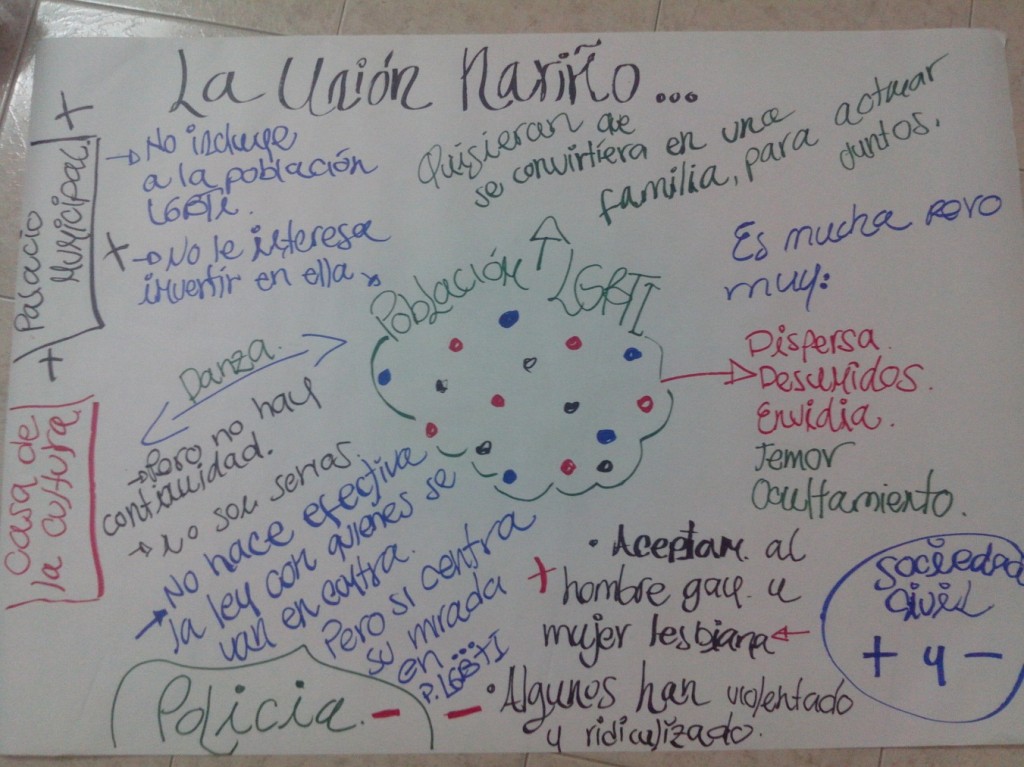 La Unión Nariño...
+
Palacio
Municipal
+
→ No incluye
a la población
LGBTI.
+ → No le interesa
invertir en ella
Quisieran que
se convirtiera en una
familia, para actuar
juntos.
Población LGBTI
Es mucha pero
muy:
Dispersa.
Desunidos.
Envidia.
Temor
Ocultamiento.
Casa de
la cultura
Danza.
→ Pero no hay
continuidad.
→ no son serias.
→ No hace efectiva
la ley con quienes se
van en contra.
Pero si centra
su mirada
en...
P. LGBTI
Policia. -
Sociedad
Civil
+ y -
+ • Aceptan al
hombre gay y
mujer lesbiana ←
- • Algunos han violentado
y ridiculizado.